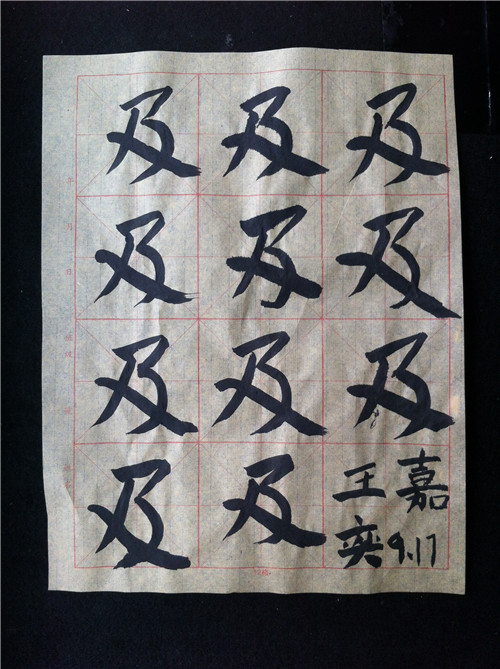 及 及 及
及 及 及
及 及 及
及 及 王嘉
奕 9.17